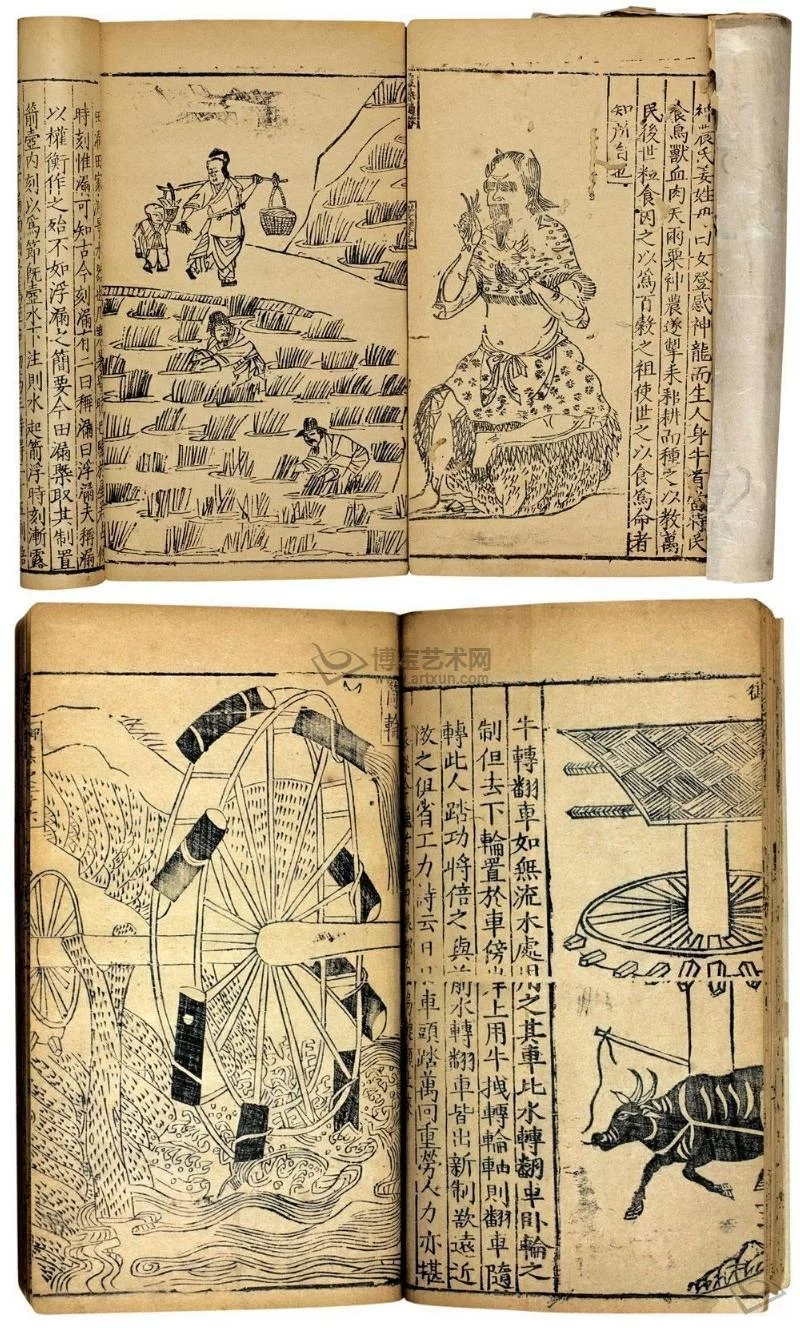 神農氏姜姓母曰女登感神龍而生人身牛首
養鳥獸血肉天雨粟神農遂掣耒耜耕而種之以教萬
民後世粒食因之以爲百穀之祖使世之以食爲命者
知所自也
田漏田家
時刻惟漏可知古今刻漏有二曰稱漏曰浮漏夫稱漏
以權衡作之殆不如浮漏之簡要今田漏槩取其制置
箭壺内刻以爲節旣壺水下注則水起箭浮時刻漸露
博宝艺术网
www.artxun.com
牛轉翻車如無流水處用之其車比水轉翻車卧輪之
制但去下輪置於車傍岸上用牛拽轉輪軸則翻車隨
轉此人踏功將倍之與前水轉翻車皆出新制欲遠近
效之俱省工力詩云日日車頭踏萬回重勞人力亦堪
筒輪